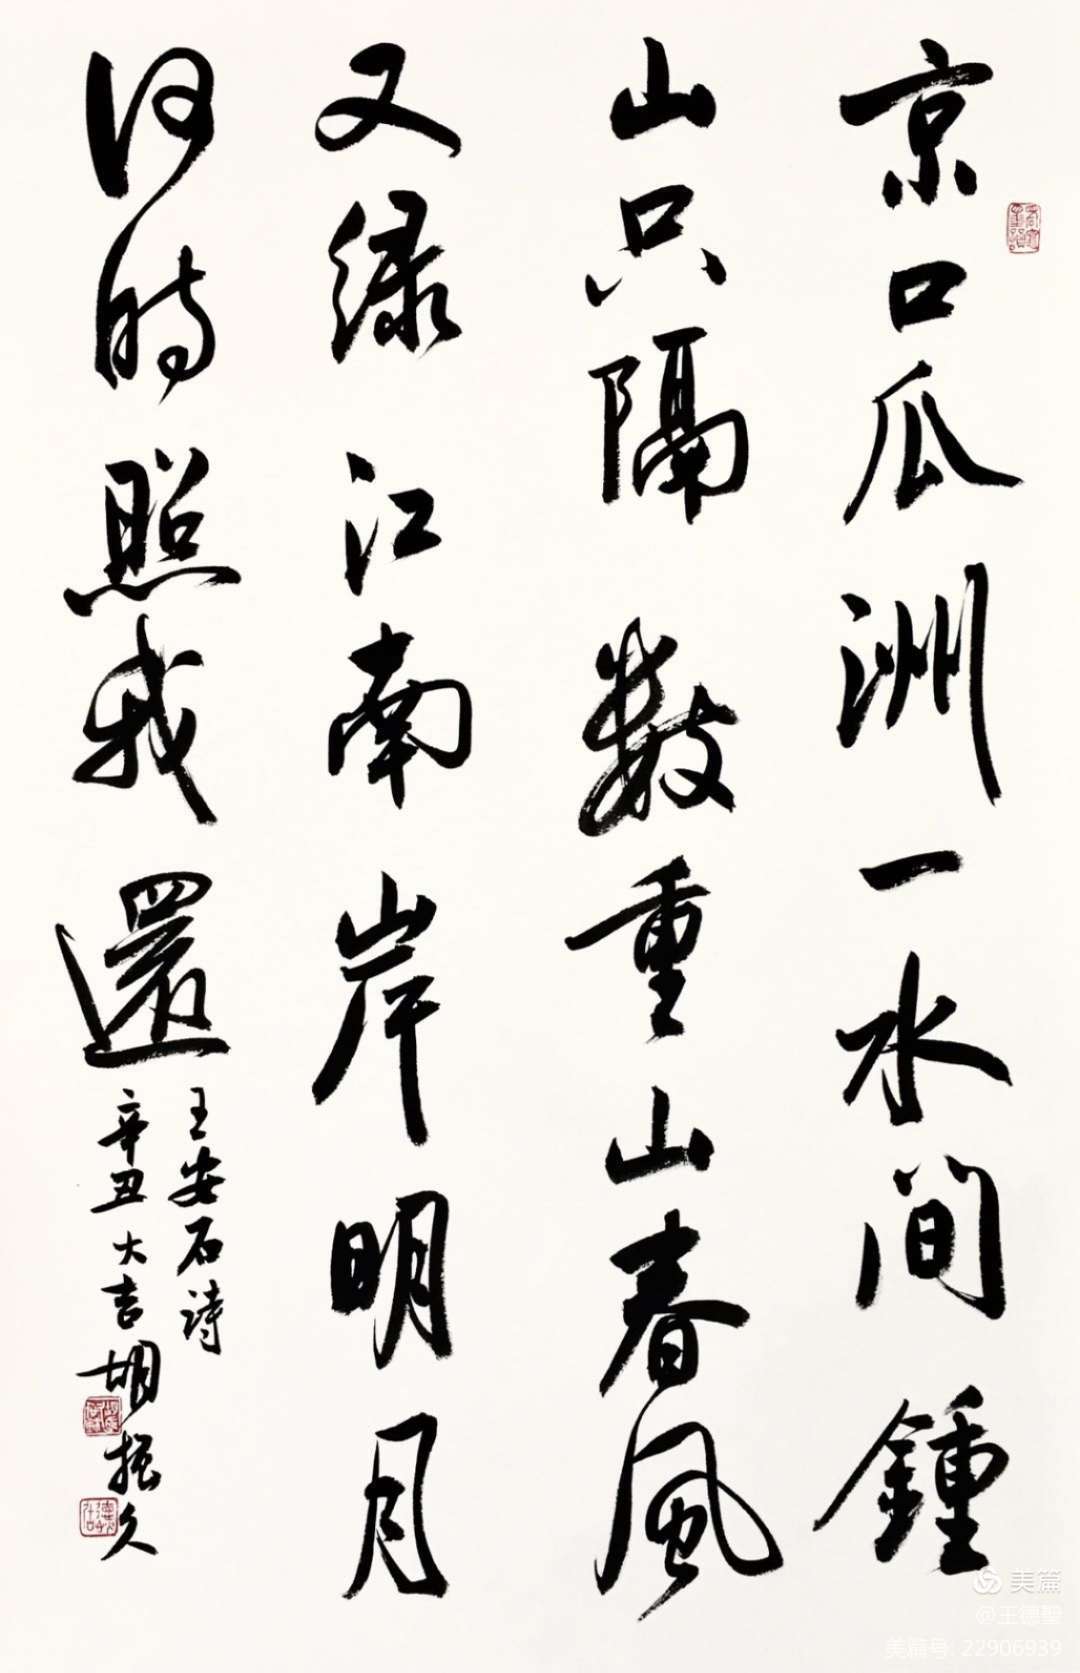 京口瓜洲一水间鍾
山只隔數重山春風
又绿江南岸明月
何時照我還
王安石诗
辛丑大吉胡振久
美篇
@王德聖
美篇号: 22906939